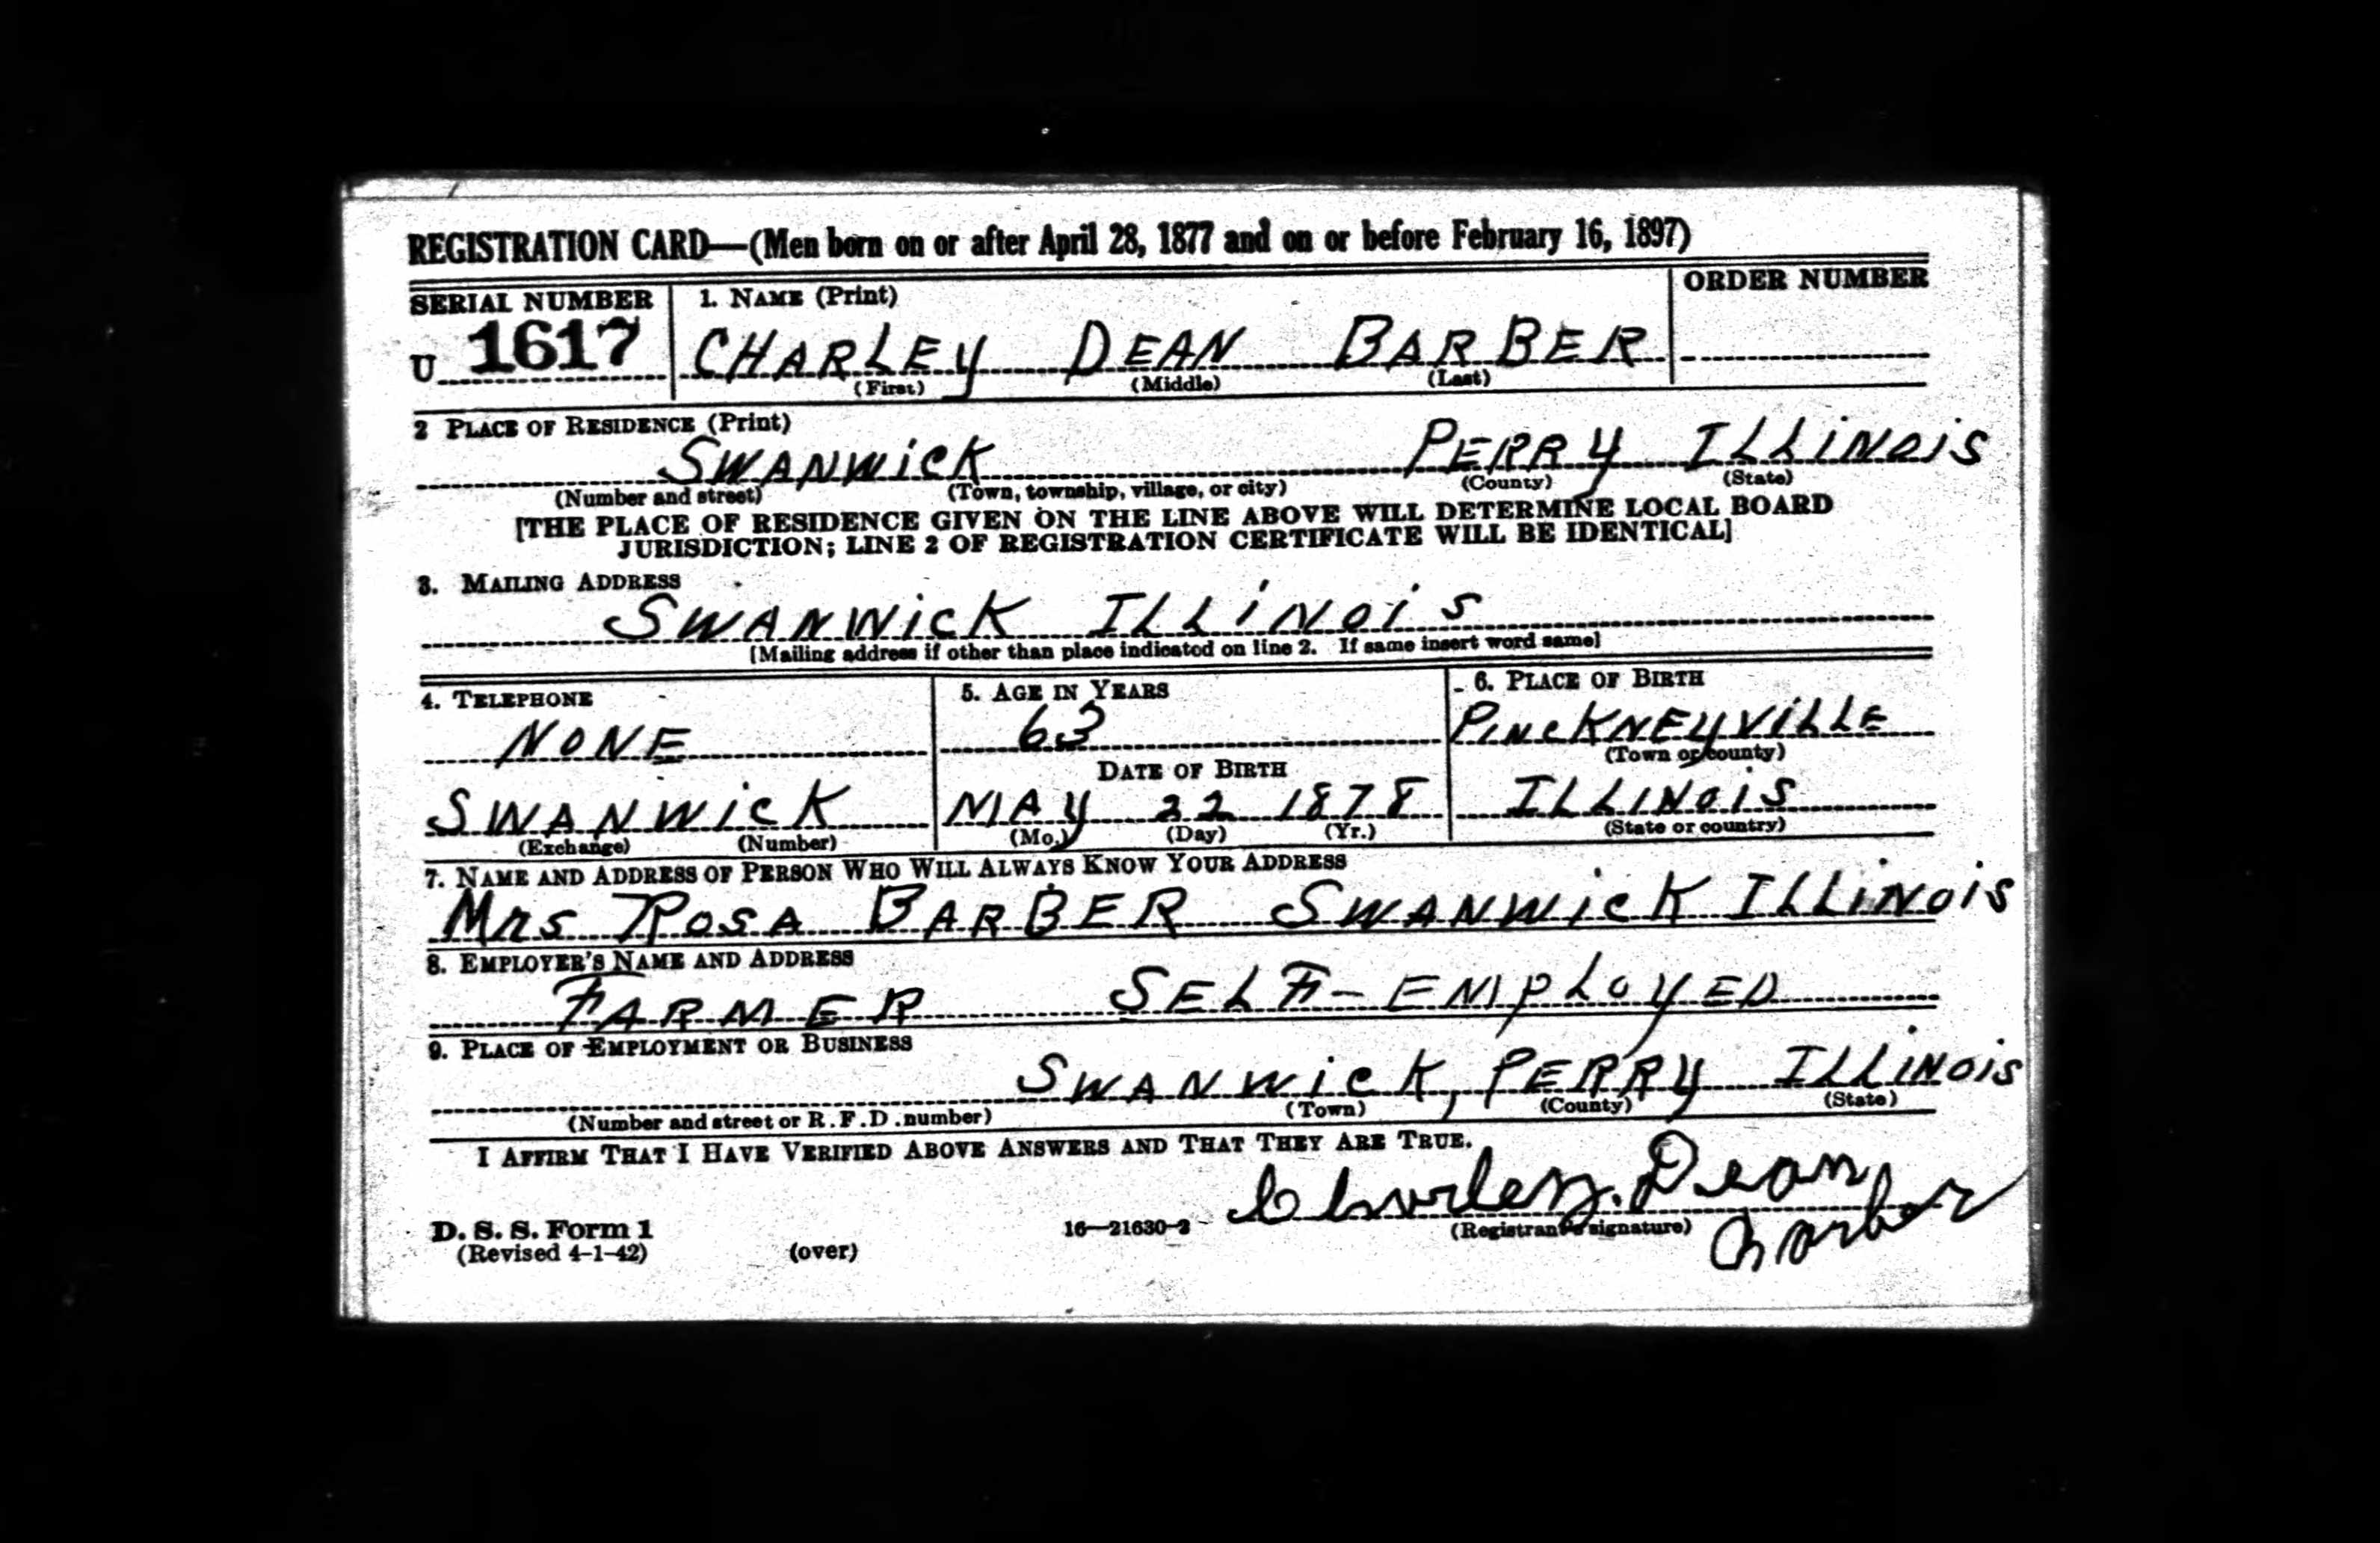 REGISTRATION CARD—(Men born on or after April 28, 1877 and on or before February 16, 1897)
SERIAL NUMBER 1. NAME (Print) ORDER NUMBER
U 1617 CHARLEY DEAN BARBER
(First) (Middle) (Last)
2 PLACE OF RESIDENCE (Print)
SWANWICK PERRY ILLINOIS
(Number and street) (Town, township, village, or city) (County) (State)
[THE PLACE OF RESIDENCE GIVEN ON THE LINE ABOVE WILL DETERMINE LOCAL BOARD
JURISDICTION; LINE 2 OF REGISTRATION CERTIFICATE WILL BE IDENTICAL]
3. MAILING ADDRESS
SWANWICK ILLINOIS
[Mailing address if other than place indicated on line 2. If same insert word same]
4. TELEPHONE 5. AGE IN YEARS 6. PLACE OF BIRTH
NONE 63 PINCKNEYVILLE
(Town or county)
DATE OF BIRTH
SWANWICK MAY 22 1878 ILLINOIS
(Exchange) (Number) (Mo.) (Day) (Yr.) (State or country)
7. NAME AND ADDRESS OF PERSON WHO WILL ALWAYS KNOW YOUR ADDRESS
MRS ROSA BARBER SWANWICK ILLINOIS
8. EMPLOYER'S NAME AND ADDRESS
FARMER SELF-EMPLOYED
9. PLACE OF EMPLOYMENT OR BUSINESS
SWANWICK, PERRY ILLINOIS
(Number and street or R.F.D. number) (Town) (County) (State)
I AFFIRM THAT I HAVE VERIFIED ABOVE ANSWERS AND THAT THEY ARE TRUE.
Charley. Dean
D. S. S. Form 1 16—21630-2 (Registrant's signature) Barber
(Revised 4-1-42) (over)